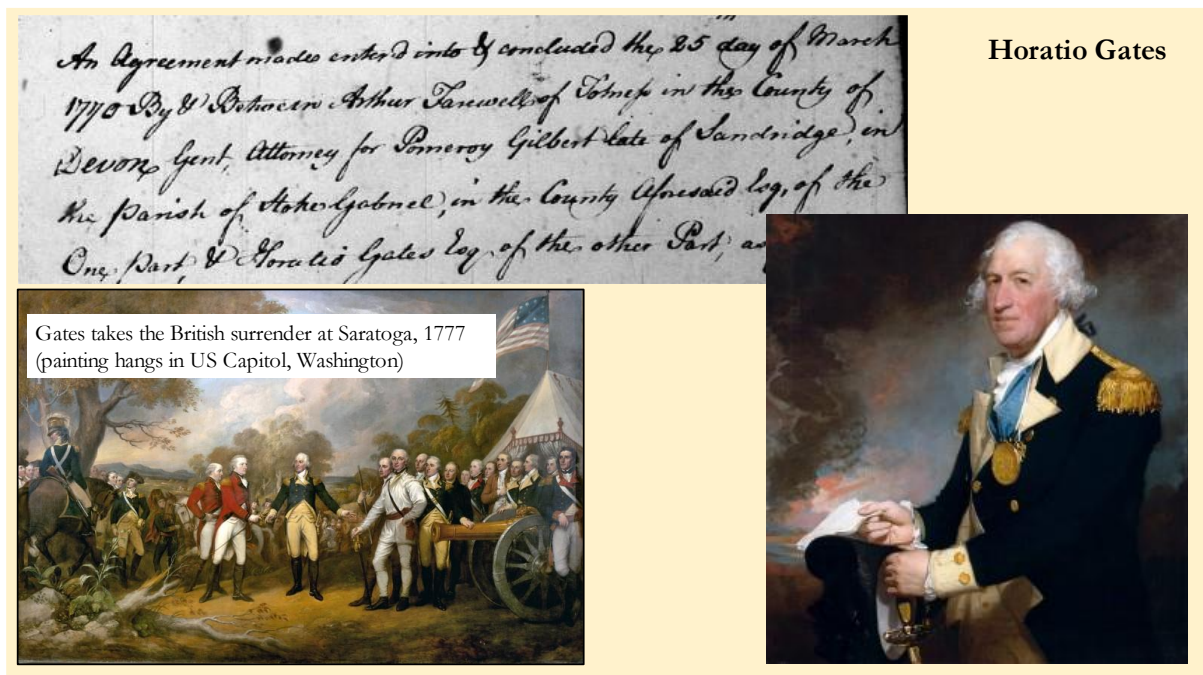 An Agreement made enter'd into & concluded the 25 day of March
1770 By & Between Arthur Farwell of Totness in the County of
Devon Gent, Attorney for Pomeroy Gilbert late of Sandridge, in
the Parish of Stoke Gabriel, in the County Aforesaid Esq, of the
One Part, & Horatio Gates Esq of the other Part, as
Horatio Gates
Gates takes the British surrender at Saratoga, 1777
(painting hangs in US Capitol, Washington)